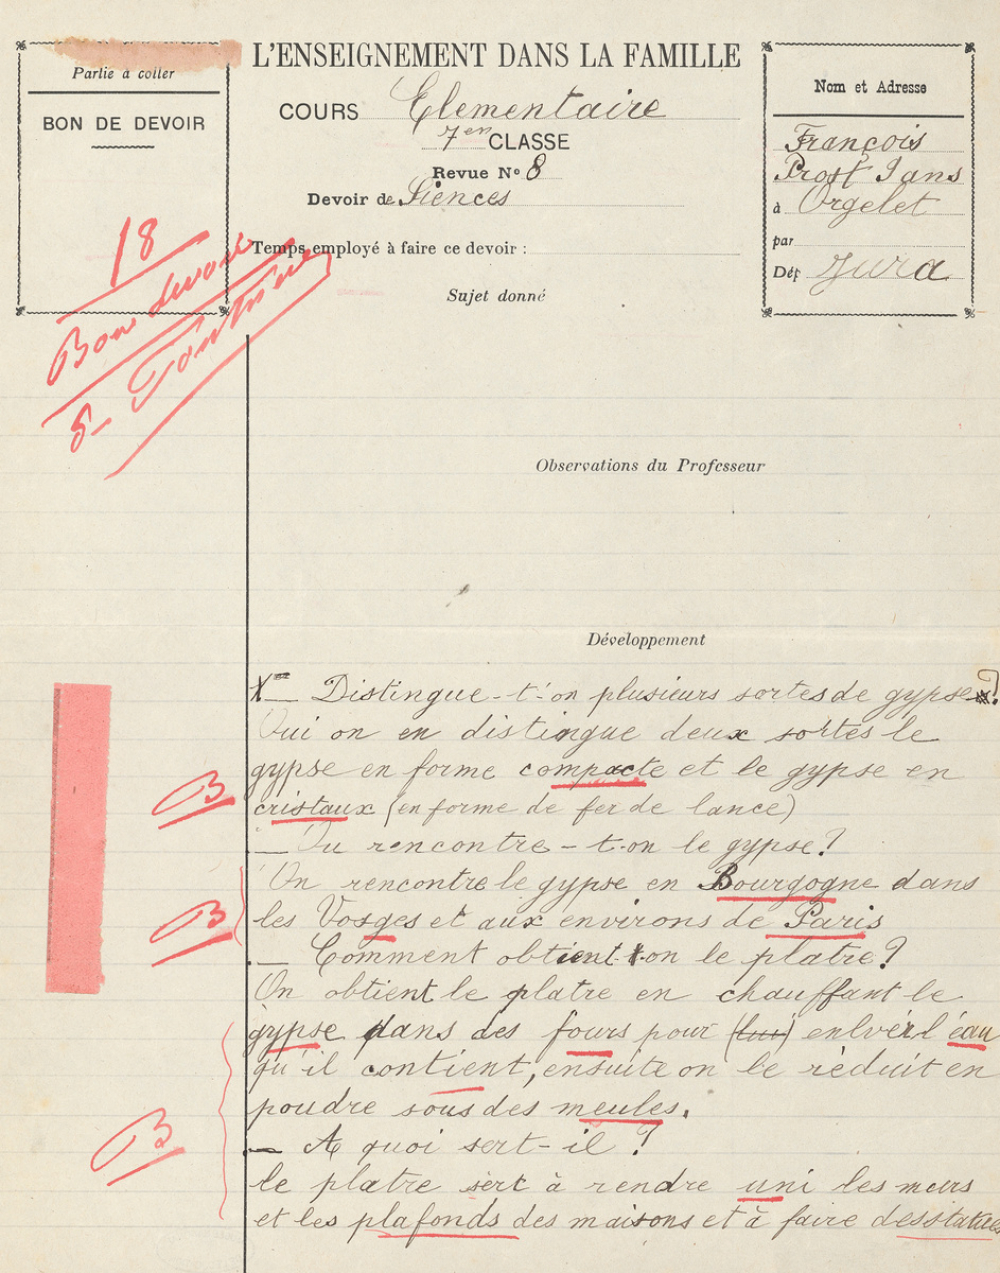 Partie à coller
BON DE DEVOIR
L'ENSEIGNEMENT DANS LA FAMILLE
COURS Elementaire
7en CLASSE
Revue No 8
Devoir de Siences
Temps employé à faire ce devoir :
Sujet donné
Nom et Adresse
François
Prost 9 ans
à Orgelet
par
Dép Jura
18
Bon devoir
Observations du Professeur
Développement
— Distingue-t'-on plusieurs sortes de gypse?
Oui on en distingue deux sortes le
gypse en forme compacte et le gypse en
B
cristaux (en forme de fer de lance)
— Ou rencontre-t-on le gypse?
On rencontre le gypse en Bourgogne dans
B
les Vosges et aux environs de Paris
— Comment obtient-t-on le platre?
On obtient le platre en chauffant le
gypse dans des fours pour (lui) enlvér l'éau
qu'il contient, ensuite on le rèduit en
poudre sous des meules.
B
— A quoi sert-il?
le platre sert à rendre uni les murs
et les plafonds des maisons et à faire des statues